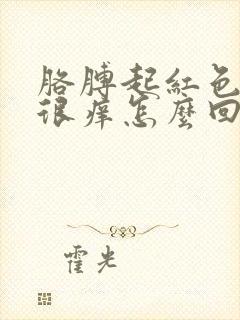 胳膊起紅色
很痒怎麽回
霍光